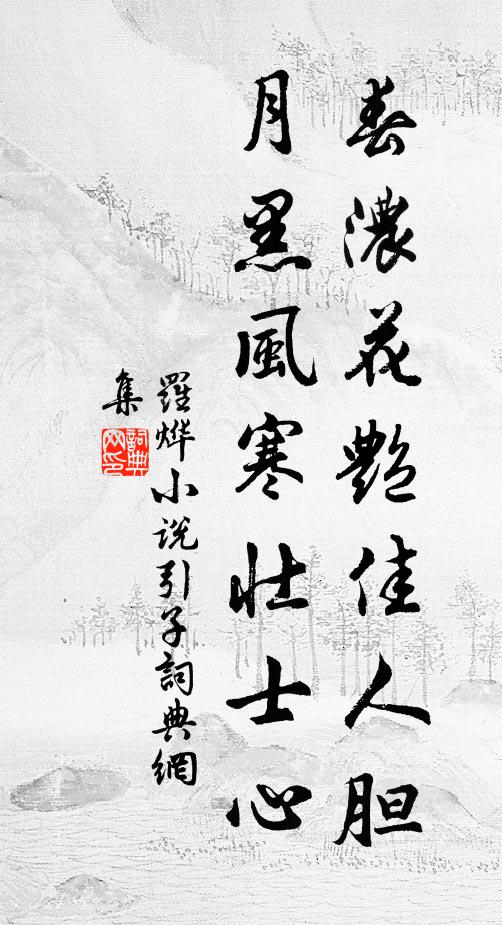 春濃花艷佳人胆
月黑風寒壮士心
羅烨小说引子詞典網
集
詞典網印